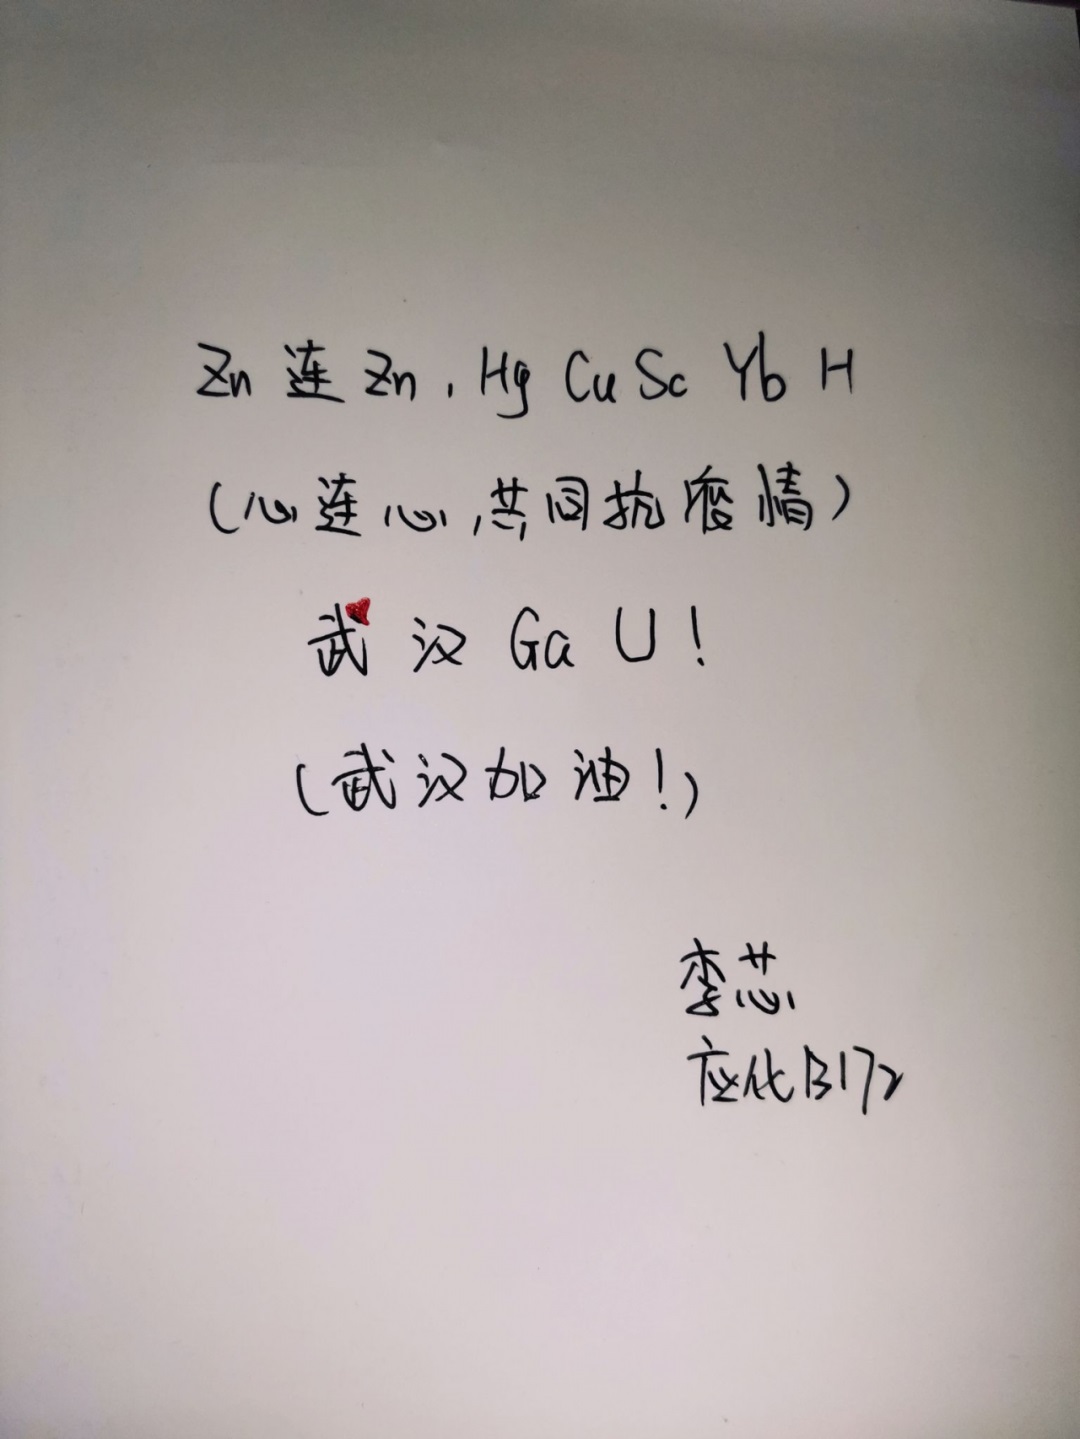 Zn 连 Zn，Hg Cu Sc Yb H
（心连心，共同抗疫情）
武汉 Ga U！
（武汉加油！）
李芯
应化B172